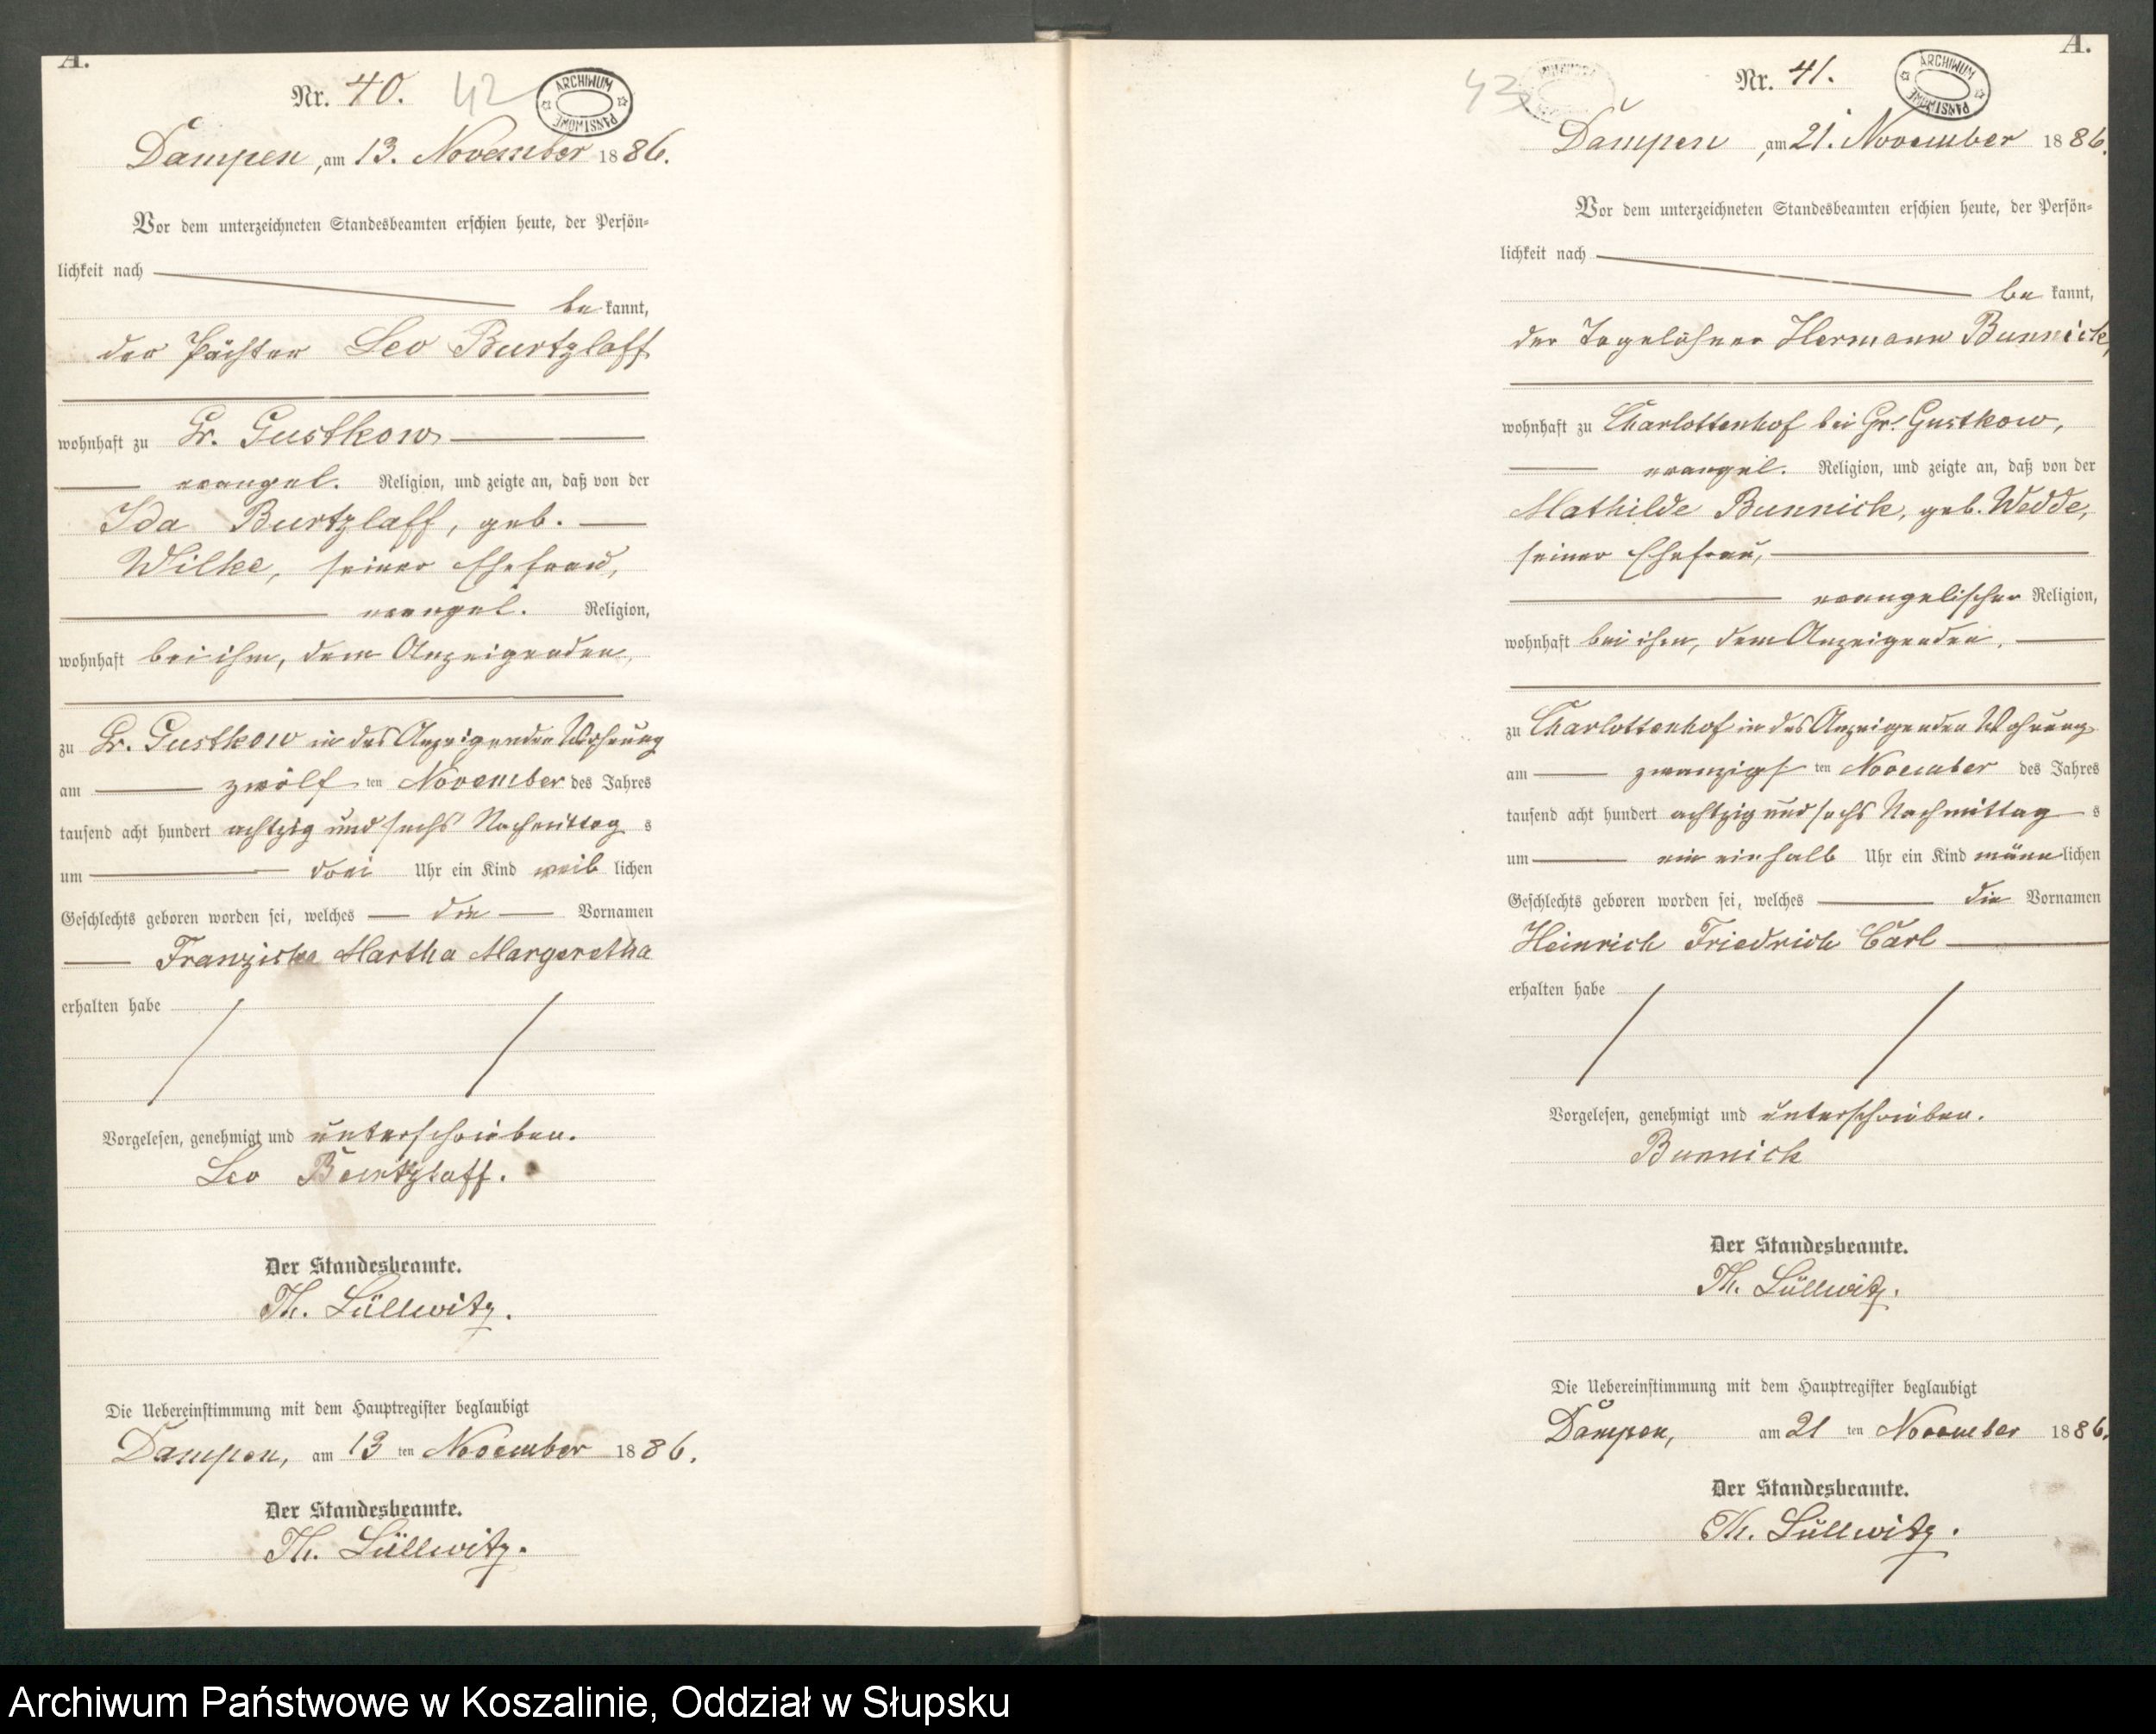 A.
Nr. 40.
42
ARCHIWUM PAŃSTWOWE
Dampen, am 13. November 1886.
Vor dem unterzeichneten Standesbeamten erschien heute, der Persön-
lichkeit nach
be kannt,
der Pächter Leo Burtzlaff
wohnhaft zu Gr. Gustkow
evangel. Religion, und zeigte an, daß von der
Ida Burtzlaff, geb.
Wilke, seiner Ehefrau,
evangel. Religion,
wohnhaft bei ihm, dem Anzeigenden,
zu Gr. Gustkow in des Anzeigenden Wohnung
am zwölf ten November des Jahres
tausend acht hundert achtzig und sechs Nachmittag s
um drei Uhr ein Kind weib lichen
Geschlechts geboren worden sei, welches die Vornamen
Franziska Martha Margaretha
erhalten habe
Vorgelesen, genehmigt und unterschrieben.
Leo Burtzlaff.
Der Standesbeamte.
Th. Lüllwitz.
Die Uebereinstimmung mit dem Hauptregister beglaubigt
Dampen, am 13 ten November 1886.
Der Standesbeamte.
Th. Lüllwitz.
A.
43
Nr. 41.
ARCHIWUM PAŃSTWOWE
Dampen, am 21. November 1886.
Vor dem unterzeichneten Standesbeamten erschien heute, der Persön-
lichkeit nach
be kannt,
der Tagelöhner Hermann Bunnick,
wohnhaft zu Charlottenhof bei Gr. Gustkow,
evangel. Religion, und zeigte an, daß von der
Mathilde Bunnick, geb. Wedde,
seiner Ehefrau,
evangelischer Religion,
wohnhaft bei ihm, dem Anzeigenden,
zu Charlottenhof in des Anzeigenden Wohnung
am zwanzigs ten November des Jahres
tausend acht hundert achtzig und sechs Nachmittag s
um ein einhalb Uhr ein Kind männ lichen
Geschlechts geboren worden sei, welches die Vornamen
Heinrich Friedrich Carl
erhalten habe
Vorgelesen, genehmigt und unterschrieben.
Bunnick
Der Standesbeamte.
Th. Lüllwitz.
Die Uebereinstimmung mit dem Hauptregister beglaubigt
Dampen, am 21 ten November 1886.
Der Standesbeamte.
Th. Lüllwitz.
Archiwum Państwowe w Koszalinie, Oddział w Słupsku